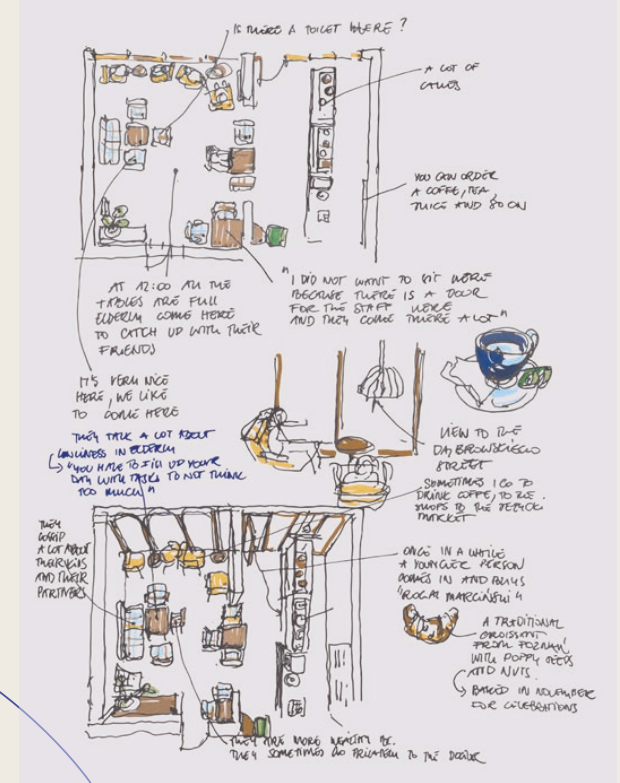 IS THERE A TOILET HERE?
A LOT OF
CAKES
YOU CAN ORDER
A COFFE, TEA,
JUICE AND SO ON
AT 12:00 ALL THE
TABLES ARE FULL
ELDERLY COME HERE
TO CATCH UP WITH THEIR
FRIENDS
"I DID NOT WANT TO SIT HERE
BECAUSE THERE IS A DOOR
FOR THE STAFF HERE
AND THEY COME THERE A LOT"
IT'S VERY NICE
HERE, WE LIKE
TO COME HERE
THEY TALK A LOT ABOUT
LONLINESS IN ELDERLY
"YOU HAVE TO FILL UP YOUR
DAY WITH TASKS TO NOT THINK
TOO MUCH"
VIEW TO THE
DĄBROWSKIEGO
STREET
SOMETIMES I GO TO
DRINK COFFE, TO THE
SHOPS TO THE
MARKET
THEY
GOSSIP
A LOT ABOUT
THEIR KIDS
AND THEIR
PARTNERS
ONCE IN A WHILE
A YOUNGER PERSON
COMES IN AND BUYS
"ROGAL MARCIŃSKI"
A TRADITIONAL
CROISSANT
FROM POZNAŃ
WITH POPPY SEEDS
AND NUTS
BAKED IN NOVEMBER
FOR CELEBRATIONS
THEY ARE MORE WEALTHY BC.
THEY SOMETIMES GO PRIVATELY TO THE DOCTOR